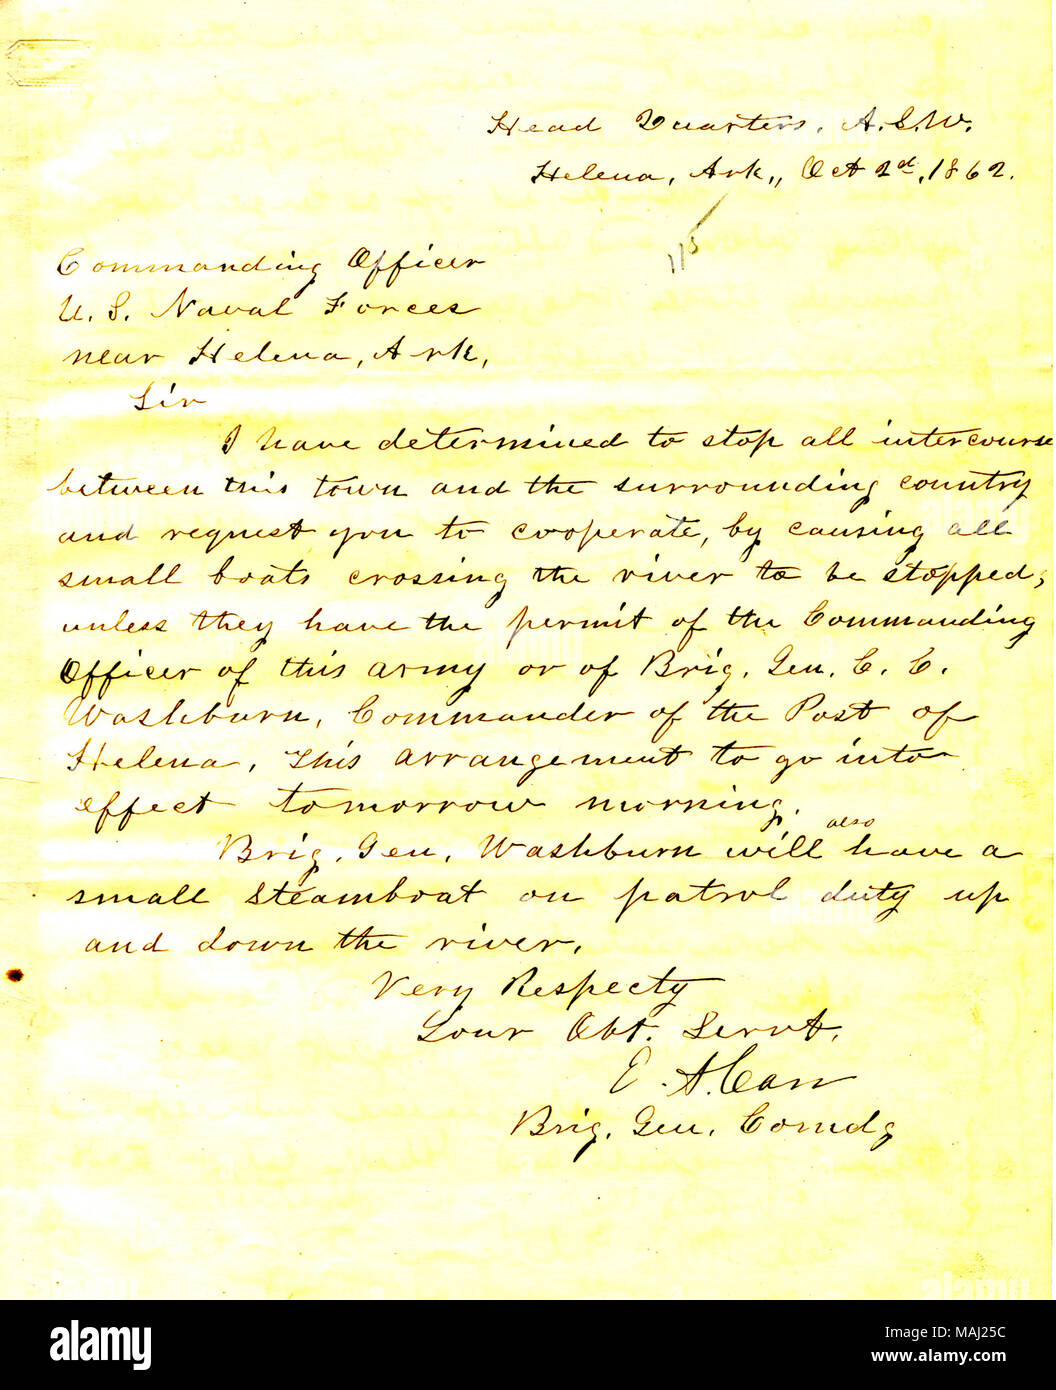 Head Quarters, A.S.W.
Helena, Ark,, Oct 2d, 1862.
115
Commanding Officer
U. S. Naval Forces
near Helena, Ark,
Sir
I have determined to stop all intercourse
between this town and the surrounding country
and request you to cooperate, by causing all
small boats crossing the river to be stopped;
unless they have the permit of the Commanding
Officer of this army or of Brig. Gen. C. C.
Washburn, Commander of the Post of
Helena. This arrangement to go into
effect tomorrow morning.
Brig. Gen. Washburn will also have a
small steamboat on patrol duty up
and down the river.
Very Respecty
Your Obt. Servt.
E. A. Carr
Brig. Gen. Comdg
alamy
Image ID: MAJ25C
www.alamy.com